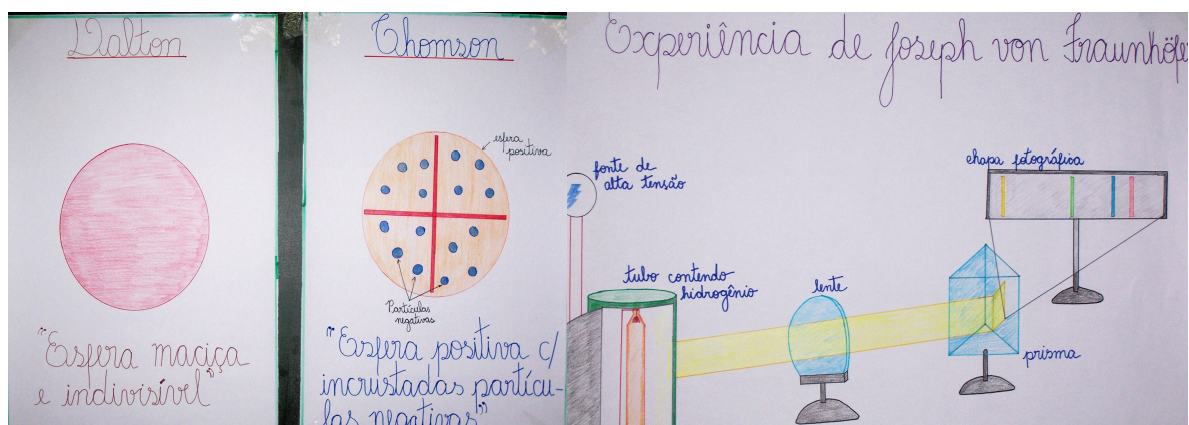 Dalton
"Esfera maciça
e indivisível"
Thomson
esfera
positiva
Partículas
negativas
"Esfera positiva c/
incrustadas partícu-
las negativas"
Experiência de Joseph von Fraunhöfer
fonte de
alta tensão
tubo contendo
hidrogênio
lente
prisma
chapa fotográfica